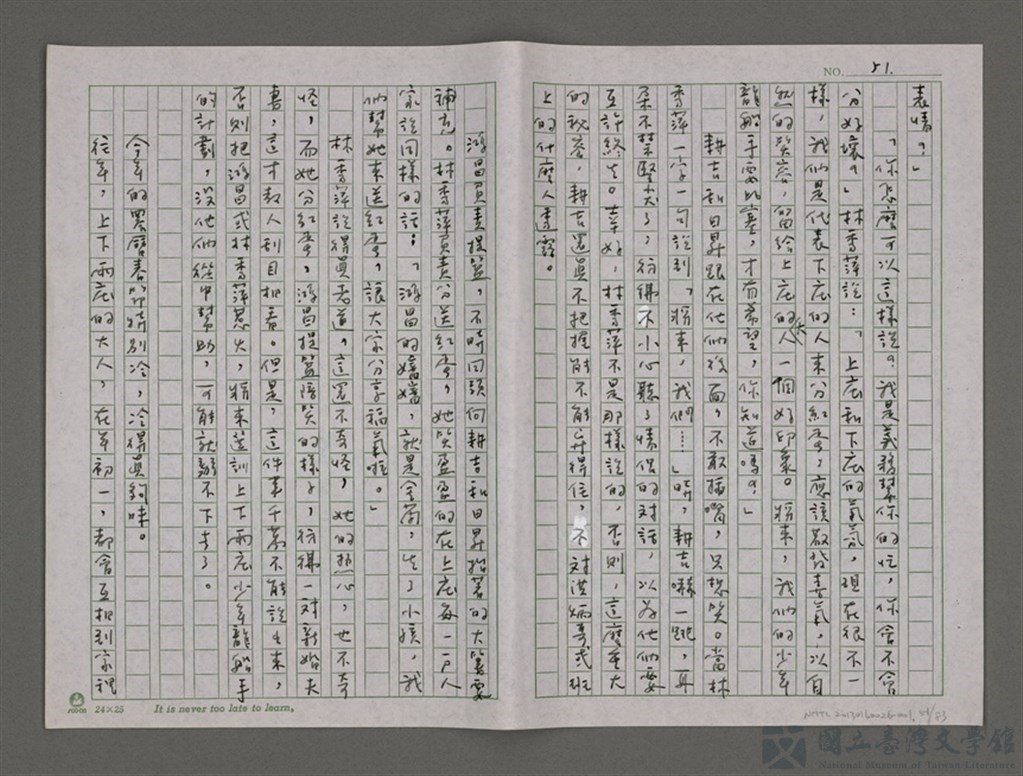 NO. 51.
表情？」
「你怎麼可以這樣說？我是義務幫你的忙，你舍不舍
分好壞？」林秀萍說：「上庄和下庄的氣氛，現在很不一
樣，我們是代表下庄的人來分紅蛋，應該散發喜氣，以自
然的笑容，留給上庄的人一個好印象。將來，我們的少年
龍船手要比賽，才有希望，你知道嗎？」
耕吉和日昇跟在他們後面，不敢插嘴，只想笑。當林
秀萍一字一句說到「將來，我們……」時，耕吉嚇一跳，耳
朵不禁豎尖了，彷彿不小心聽了情侶的對話，以為他們要
互許終生。幸好，林秀萍不是那樣說的，否則，這麼重大
的秘密，耕吉還真不把握能不能弄得住，不對洪炳壽或班
上的什麼人透露。
鴻昌負責提籃，不時回頭向耕吉和日昇抬著的大簍要
補充。林秀萍負責分送紅蛋，她笑盈盈的在上庄每一戶人
家說同樣的話：「鴻昌的嬸嬸，就是金蘭，生了小孩，我
們幫她來送紅蛋，讓大家分享福氣啦。」
林秀萍說得真老道。這還不奇怪，她的熱心，也不奇
怪，而她分紅蛋，鴻昌提籃陪笑的樣子，彷彿一對新婚夫
妻，這才教人刮目相看。但是，這件事千萬不能說出來，
否則把鴻昌或林秀萍惹火，將來籌訓上下兩庄少年龍船手
的計劃，沒他們從中幫助，可能就辦不下去了。
今年的農曆春節特別冷，冷得真夠味。
往年，上下兩庄的大人，在年初一，都會互相到家裡
24×25 It is never too late to learn.
國立臺灣文學館
National Museum of Taiwan Literature